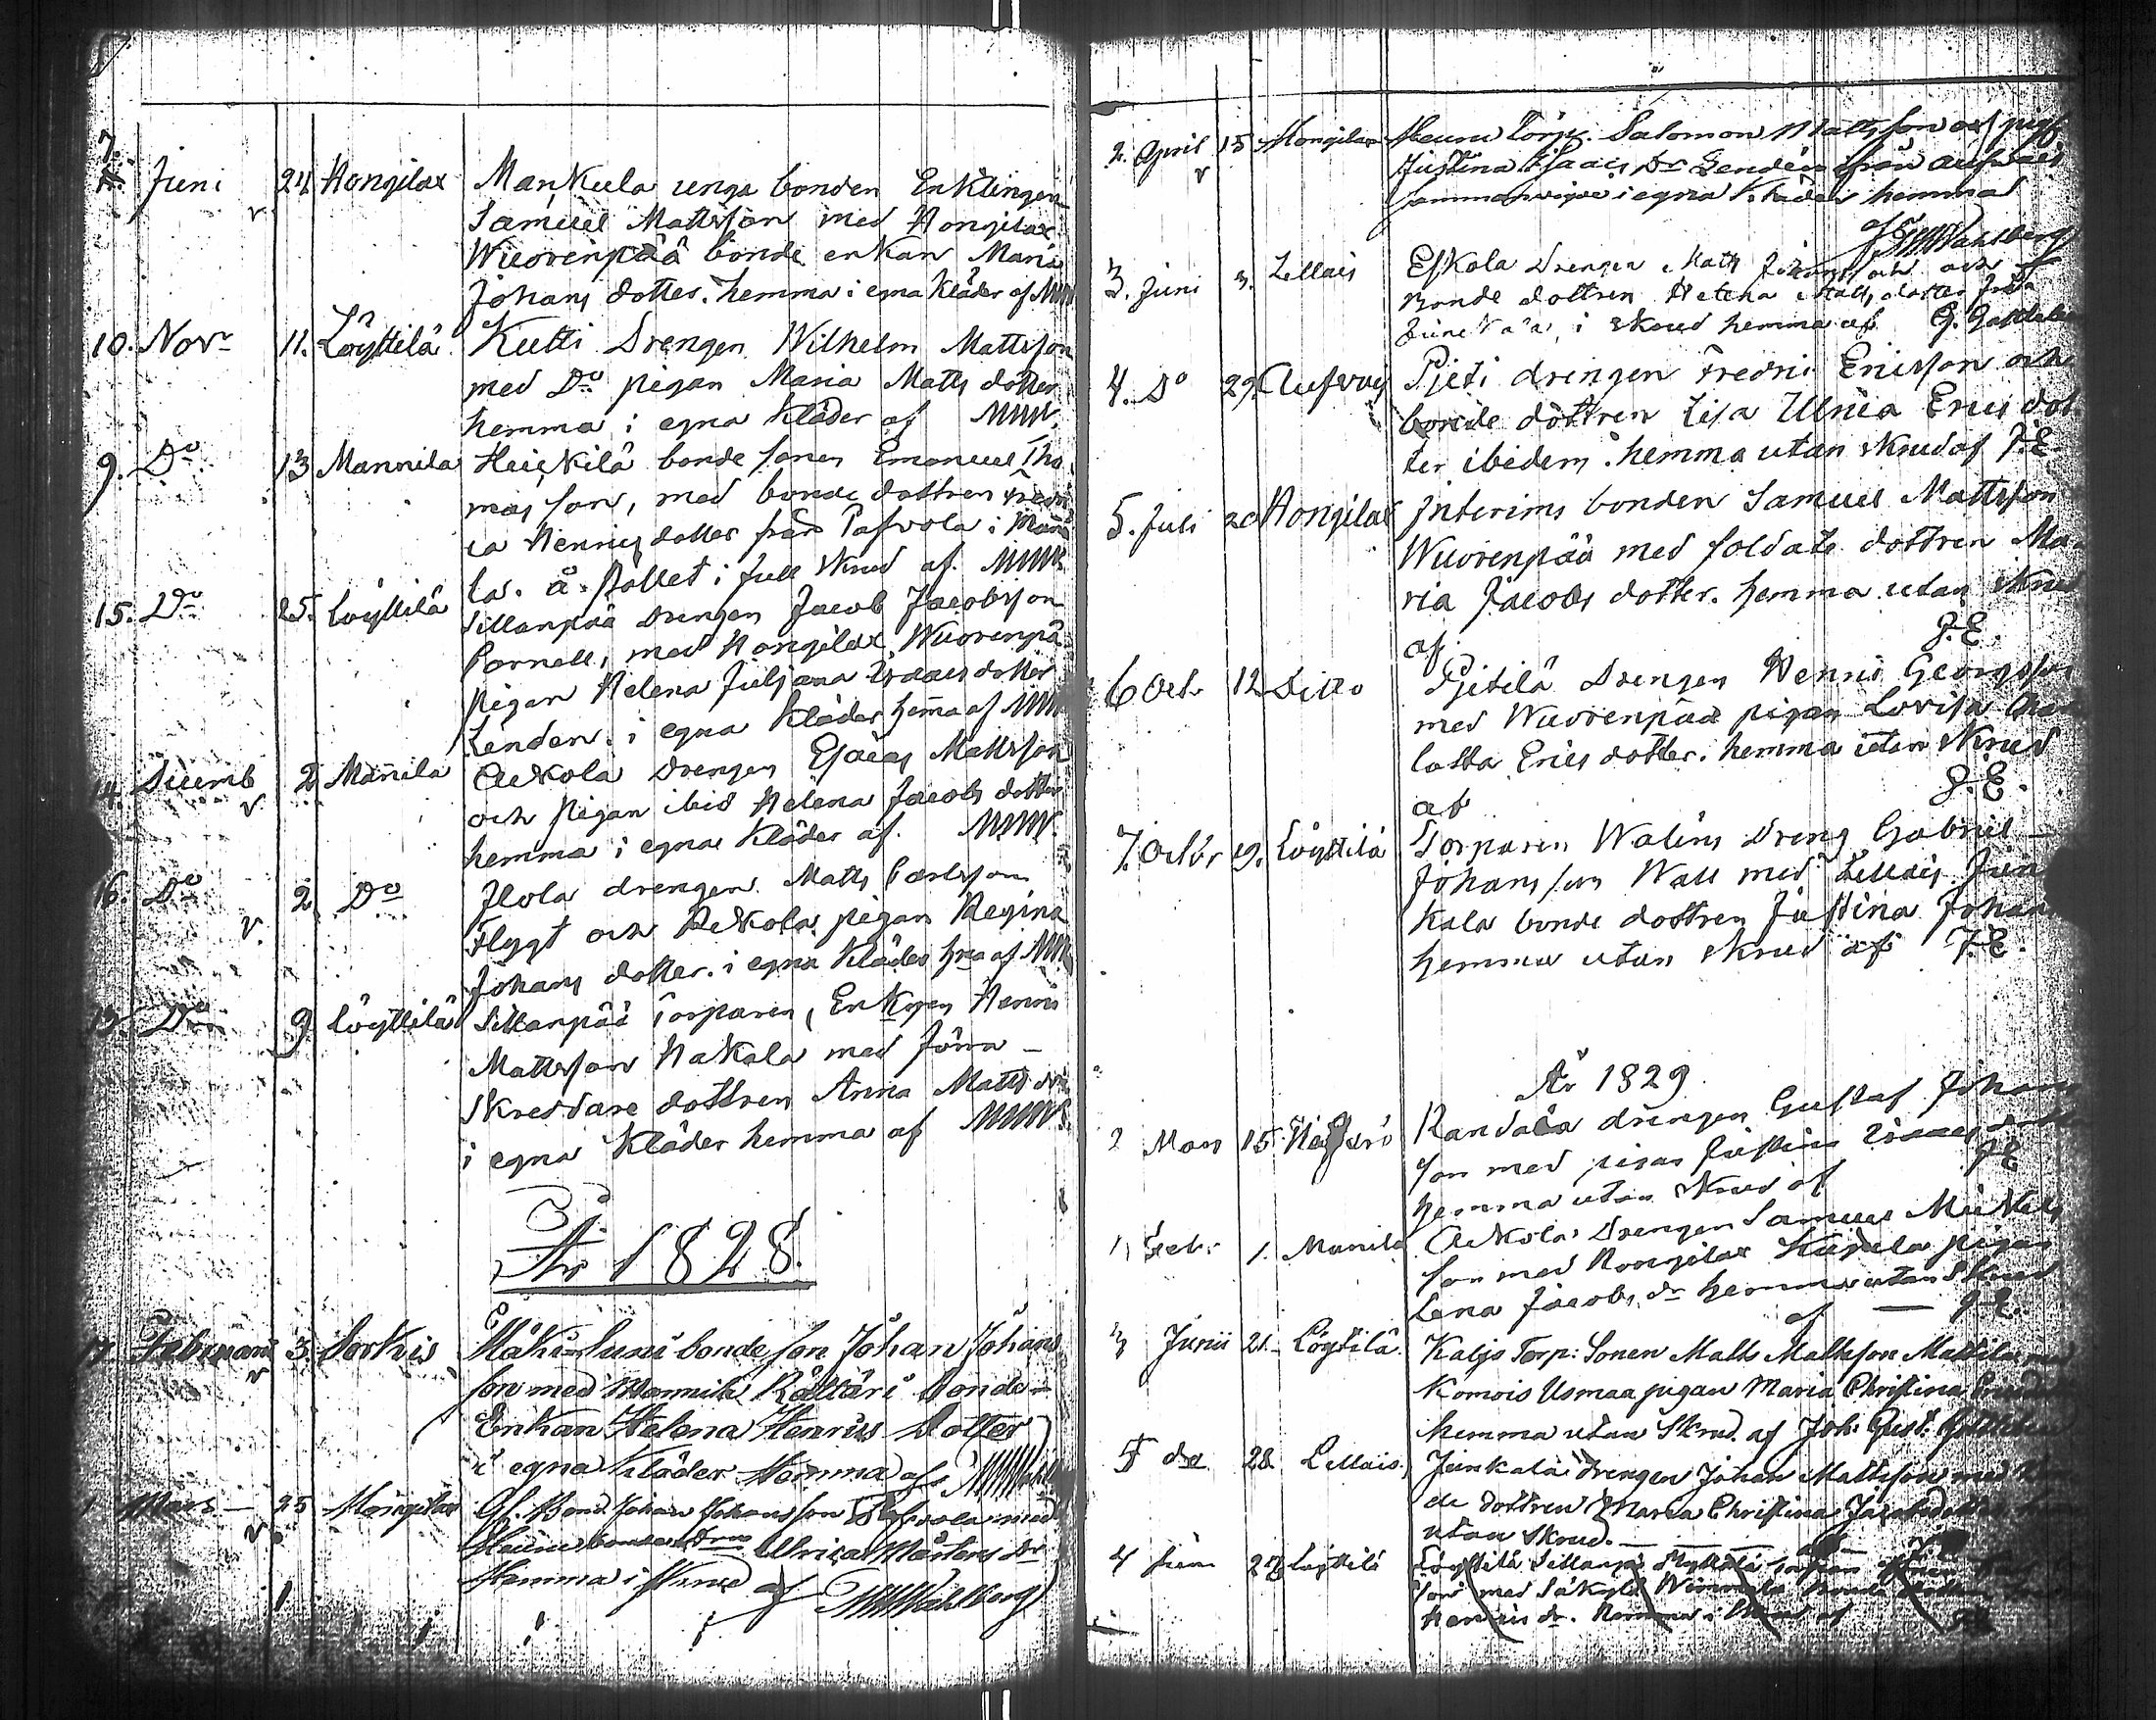 7.
Juni 24 Hongilax Mankula unga bonden Enklingen
Samuel Mattsson med Hongilax
Wuorenpää bonde enkan Maria
Johans dotter. hemma i egna kläder af MW
10. Novr 11. Löyttilä Kutti Drengen Wilhelm Mattsson
med Do pigan Maria Matts dotter
hemma i egna kläder af MMW.
9. Do 13 Mannila Heickilä bonde sonen Emanuel Tho
mas son, med bonde dottren Fredri
ca Henrics dotter från Pafvola i Manni
la. å stället i full skrud af. MMW.
15. Do 25. Löyttilä Sillanpää Drengen Jacob Jacobsson
med Hongilax Wuorenpä
pigan Helena Juljana Isaacs dotter
Lenden. i egna kläder hemma af MMW
14. Decemb 2 Mannila Ackola Drengen Esaias Mattsson
och pigan ibid Helena Jacobs dotter
hemma i egna kläder af. MMW.
16. Do 2 Do Ilola drengen Matts Carlsson
Flygt och Ackola pigan Regina
Johans dotter. i egna kläder hma af MW
13. Do 9 Löyttilä Sillanpää Torparen, Enkgen Henric
Mattsson Hakala med
Skreddare dottren Anna Matts dr
i egna kläder hemma af MMW.
År 1828.
Februarii 3 Sorkis Mäki Susi bonde son Johan Johans
son med Mannila Rättäri bonde-
Enkan Helena Henrics Dotter
i egna kläder Hemma af MWahlb
1 Mars 25 Hongilax Gl. Bond. Johan Johansson Pafvola med
bonde Ulrica Mårtens dr
Hemma i skrud af MWWahlberg
2. April 15 Hongilax Torp. Salomon Mattsson och pig.
Justina Isaacs Dr Lendén från Aufvais
sammanvigde i egna Kläder hemma
af MWWahlberg
3. Juni 3. Lellais Eskola Drengen Matts Johansson och
Bonde dottren Helena Matts dotter från
i skrud hemma af G.
4. Do 29. Aufvais Pjeti drengen Fredric Ericsson och
bonde dottren Lisa Ulrica Erics dot
ter ibidem. hemma utan skrud af J.E.
5. Juli 20 Hongilax Interims bonden Samuel Mattsson
Wuorenpää med soldats dottren Ma
ria Jacobs dotter. hemma utan skrud
af J.E.
6 Oct. 12 Ditto Pjetilä Drengen Henric Georgsson
med Wuorenpää pigan Lovisa Char
lotta Erics dotter. hemma utan skrud
af J.E.
7. Octbr 19. Löyttilä Torparen Waléns Dreng Gabriel
Johansson Wall med Lellais Jun
kala bonde dottren Justina Johans
hemma utan skrud af J.E.
År 1829
2 Mars 15 Randala drengen Gustaf Johans
son med pigan Justina Isaacs dott
hemma utan skrud af J.E
1 Febr. 1. Manila Ackola Drengen Samuel Mickels
son med Hongilax pigan
Lena Jacobs dr hemma utan Skrud
af J.E.
3 Junii 21. Löytilä. Kaljs Torp: Sonen Matts Mattsson Mattila med
Komois Usmaa pigan Maria Christina
hemma utan Skrud. af Joh: Gust:
5 do 28 Lellais. Junkala drengen Johan Mattsson med
de dottren Maria Christina Jacobsdotter
utan skrud.
4 Juni 27 Löyttilä Löyttilä Sillanpä
son med Säkylä
Henrics dr. Hemma i skrud af